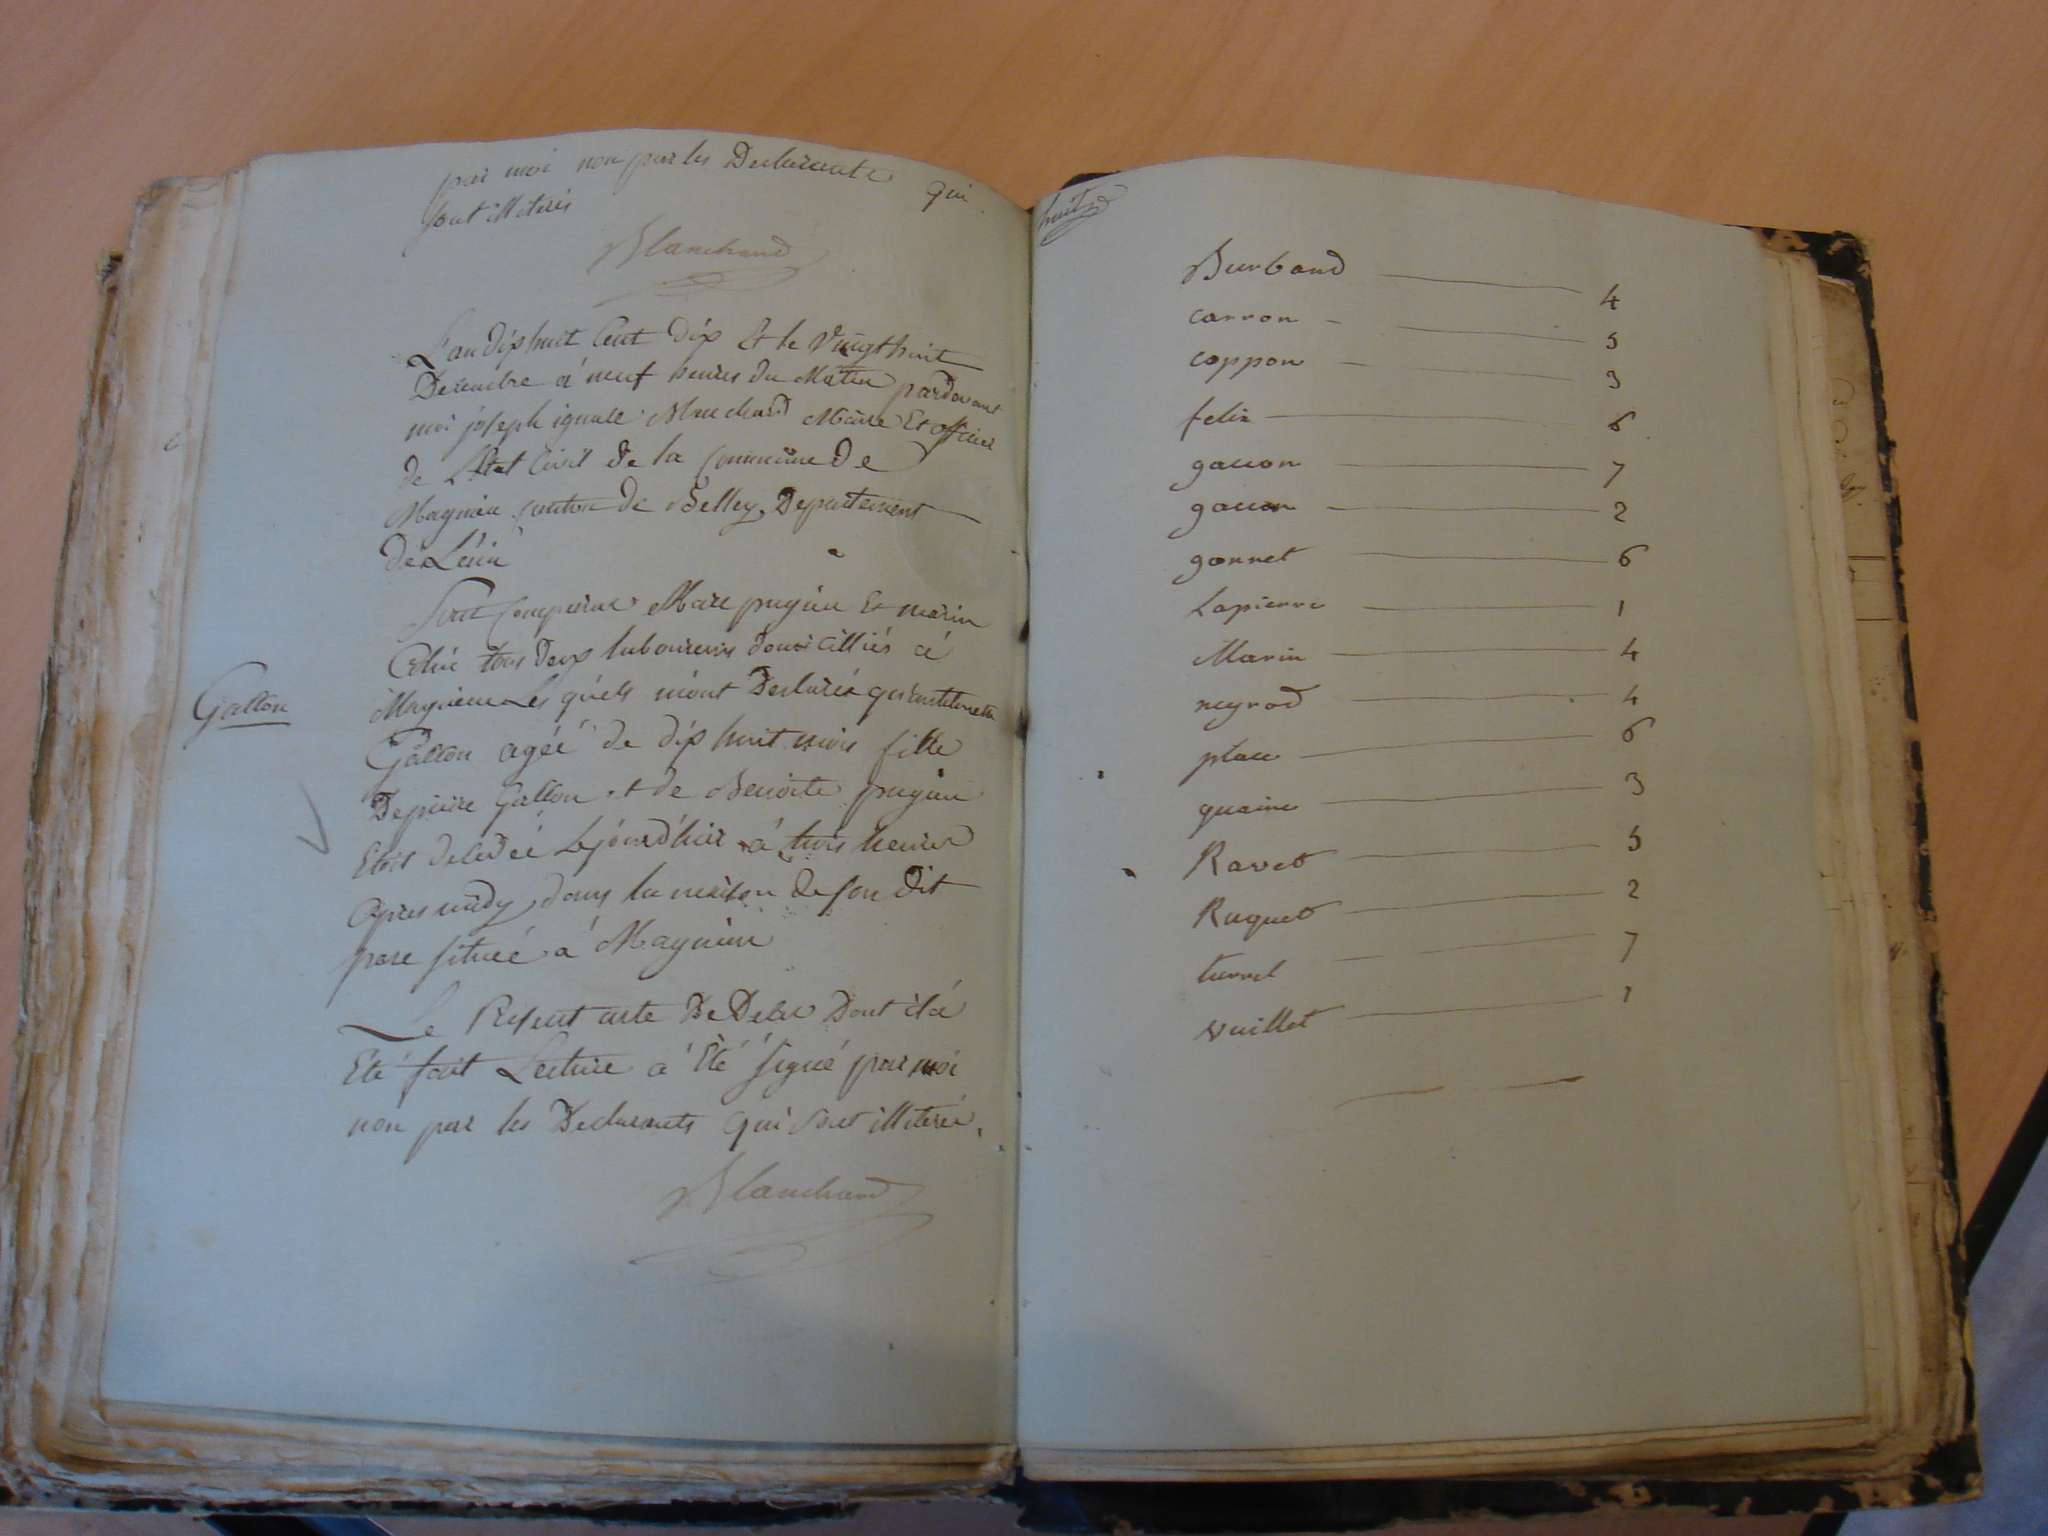 par moi non par les Declarants qui
sont illiterés
Blanchard
L'an dix huit Cent dix Et le Vingt huit
Decembre à neuf heures du Matin pardevant
moi joseph ignace Blanchard Maire Et officier
de L'Etat Civil de la Commune De
Magnieu Canton de Belley, Departement
De L'ain
Sont Comparus Marc pugieu Et marin
tous Deux laboureurs domicilliés à
Magnieu Les quels m'ont Declaré
Gallon
Gallon agéé de dix huit mois fille
De pierre Gallon et de Benoite pugieu
Etoit decedéé Le jourd'hier à trois heures
Apres midy dans la maison de son Dit
pere situéé à Magnieu
Le Présent acte De Deces Dont il à
Eté fait Lecture à Eté signé par moi
non par les Declarants qui sont illiterés.
Blanchard
huit
Burband 4
carron 5
coppon 3
felix 6
gacon 7
gacon 2
gonnet 6
Lapierre 1
Marin 4
neyrod 4
place 6
quaine 3
Ravet 5
Ruquet 2
turrel 7
vuillet 1